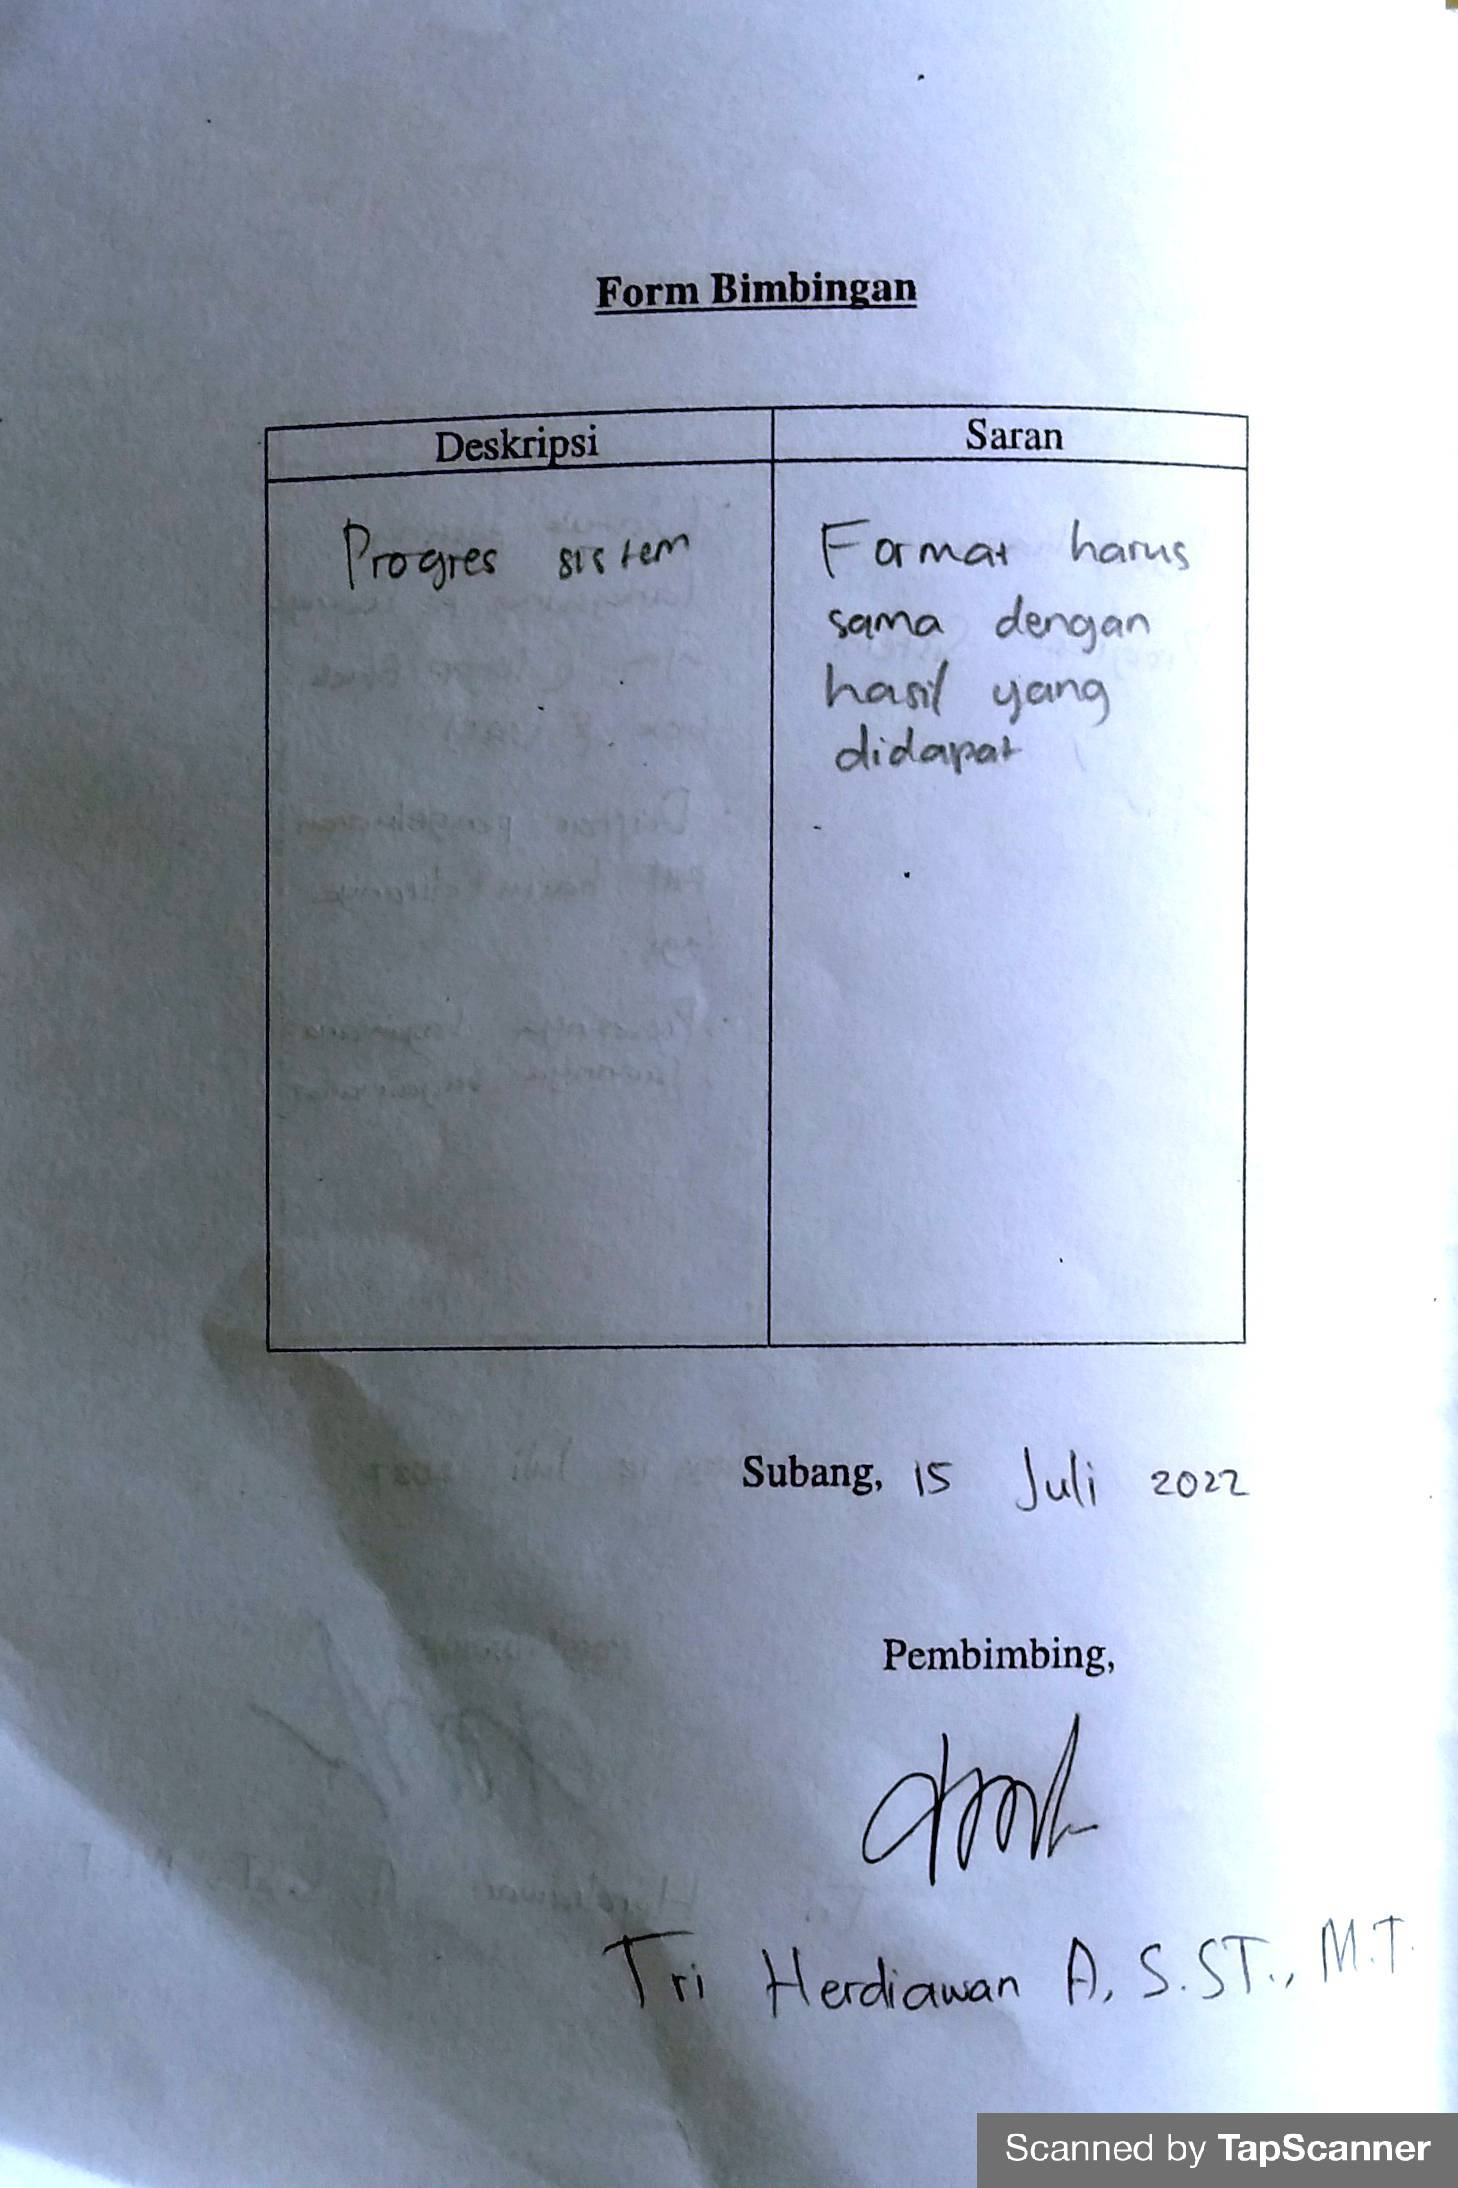 Form Bimbingan
Deskripsi
Saran
Progres sistem
Format harus
sama dengan
hasil yang
didapat
Subang, 15 Juli 2022
Pembimbing,
Tri Herdiawan A, S.ST., M.T.
Scanned by TapScanner